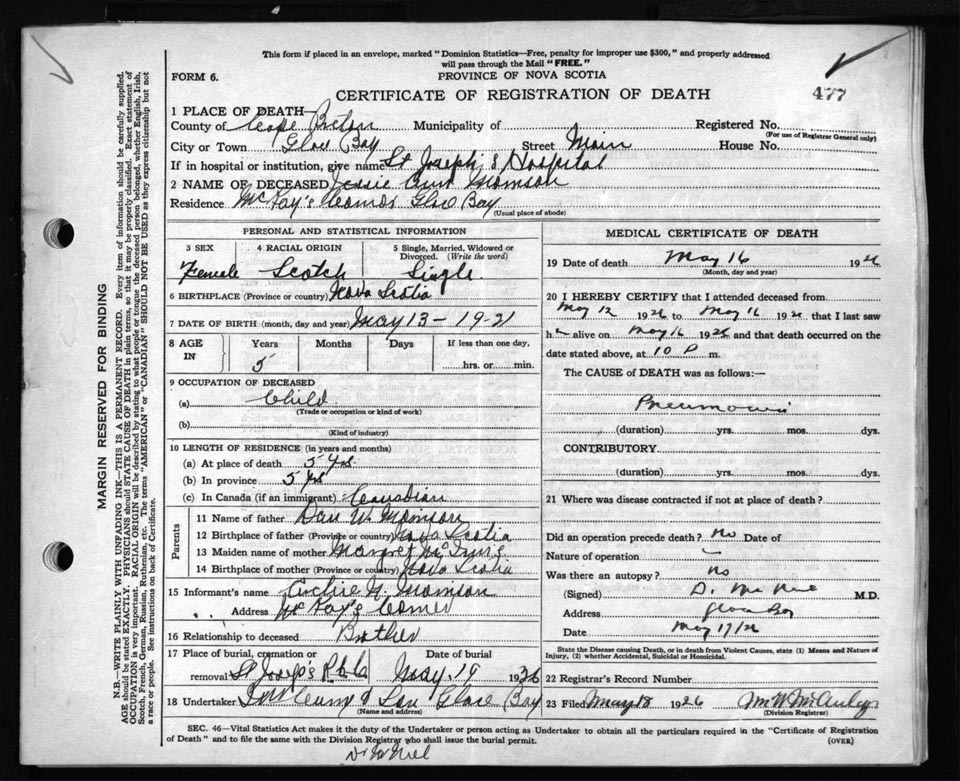 This form if placed in an envelope, marked "Dominion Statistics—Free, penalty for improper use $300," and properly addressed
will pass through the Mail "FREE."
FORM 6.
PROVINCE OF NOVA SCOTIA
CERTIFICATE OF REGISTRATION OF DEATH
477
1 PLACE OF DEATH—
County of Cape Breton Municipality of Registered No.
(For use of Registrar General only)
City or Town Glace Bay Street Main House No.
If in hospital or institution, give name St Joseph's Hospital
2 NAME OF DECEASED Jessie Morrison
Residence McKay's Corner Glace Bay
(Usual place of abode)
PERSONAL AND STATISTICAL INFORMATION
3 SEX 4 RACIAL ORIGIN 5 Single, Married, Widowed or Divorced. (Write the word)
Female Scotch Single
6 BIRTHPLACE (Province or country) Nova Scotia
7 DATE OF BIRTH (month, day and year) May 13 - 19-21
8 AGE IN Years Months Days If less than one day,
5 hrs. or min.
9 OCCUPATION OF DECEASED
(a) Child
(Trade or occupation or kind of work)
(b)
(Kind of industry)
10 LENGTH OF RESIDENCE (in years and months)
(a) At place of death 5 yrs.
(b) In province 5 yrs
(c) In Canada (if an immigrant) Canadian
Parents
11 Name of father Dan W. Morrison
12 Birthplace of father (Province or country) Nova Scotia
13 Maiden name of mother Margret McInnis
14 Birthplace of mother (Province or country) Nova Scotia
15 Informant's name Archie N. Morrison
Address McKay's Corner
16 Relationship to deceased Brother
17 Place of burial, cremation or removal Date of burial
St Josep's R.C.C May. 19 1926
18 Undertaker & Son Glace Bay
(Name and address)
MEDICAL CERTIFICATE OF DEATH
19 Date of death May 16 1926
(Month, day and year)
20 I HEREBY CERTIFY that I attended deceased from
May 12 1926 to May 16 1926 that I last saw
h alive on May 16 1926 and that death occurred on the
date stated above, at 10 P m.
The CAUSE of DEATH was as follows:—
Pneumonia
(duration) yrs. mos. dys.
CONTRIBUTORY
(duration) yrs. mos. dys.
21 Where was disease contracted if not at place of death?
Did an operation precede death? no Date of
Nature of operation
Was there an autopsy? no
(Signed) D. McNeil M.D.
Address Glace Bay
Date May 17/26
State the Disease causing Death, or in death from Violent Causes, state (1) Means and Nature of
Injury, (2) whether Accidental, Suicidal or Homicidal.
22 Registrar's Record Number
23 Filed May 18 1926 M W McAuley
(Division Registrar)
SEC. 46—Vital Statistics Act makes it the duty of the Undertaker or person acting as Undertaker to obtain all the particulars required in the "Certificate of Registration
of Death" and to file the same with the Division Registrar who shall issue the burial permit.
(OVER)
Dr McNeil
MARGIN RESERVED FOR BINDING
N.B.—WRITE PLAINLY, WITH UNFADING INK—THIS IS A PERMANENT RECORD. Every item of information should be carefully supplied.
AGE should be stated EXACTLY. PHYSICIANS should STATE CAUSE OF DEATH in plain terms, so that it may be properly classified. Exact statement of
OCCUPATION is very important. RACIAL ORIGIN will be described by stating to what people or tongue the deceased person belonged, whether English, Irish,
Scotch, French, German, Russian, Ruthenian, etc. The terms "AMERICAN" or "CANADIAN" SHOULD NOT BE USED as they express citizenship but not
a race or people. See instructions on back of Certificate.